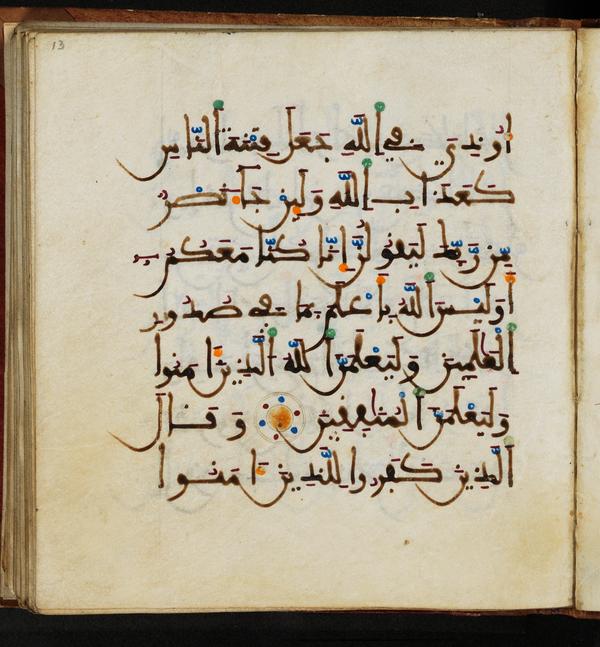 13
اُوذِيَ فِي اَللَّهِ جَعَلَ فِتْنَةَ اَلنَّاسِ
كَعَذَابِ اِللَّهِ وَلَئِن جَآءَ نَصْرٌ
مِّن رَّبِّكَ لَيَقُولُنَّ إِنَّا كُنَّا مَعَكُمُۥ
أَوَلَيْسَ اَللَّهُ بِأَعْلَمَ بِمَا فِي صُدُورِ
اِلْعَٰلَمِينَ وَلَيَعْلَمَنَّ اَللَّهُ اُلَّذِينَ ءَامَنُوا
وَلَيَعْلَمَنَّ اَلْمُنَٰفِقِينَ وَقَالَ
اَلَّذِينَ كَفَرُوا لِلَّذِينَ ءَامَنُوا